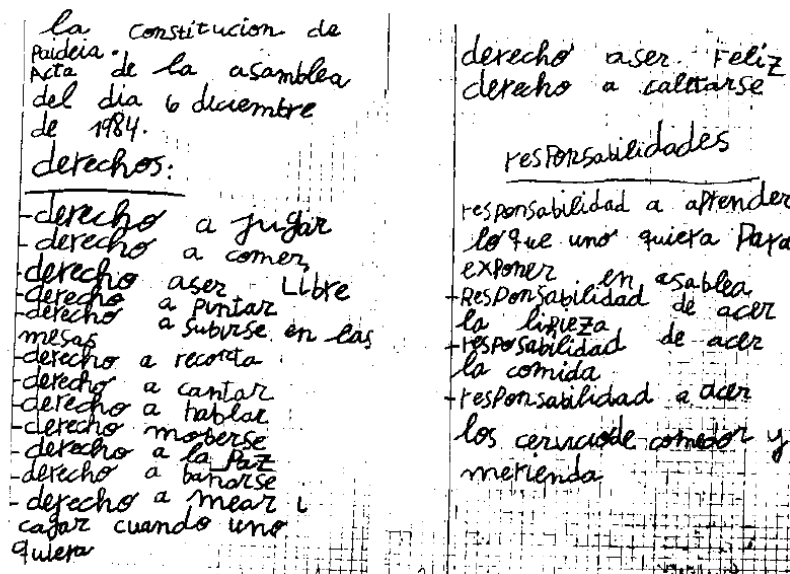 la constitucion de
Paideia.
Acta de la asamblea
del dia 6 diciembre
de 1984.
derechos:
-derecho a jugar
-derecho a comer,
-derecho aser Libre
-derecho a pintar
-derecho a subirse en las
mesas
-derecho a recorta
-derecho a cantar
-derecho a hablar
-derecho moberse
-derecho a la Paz
-derecho a bañarse
-derecho a mear i
cagar cuando uno
quiera
derecho aser Feliz
derecho a calttarse
responsabilidades
responsabilidad a aprender
lo que uno quiera Para
exponer en asablea
-Responsabilidad de acer
la lipieza
-resposabilidad de acer
la comida
-responsabilidad a acer
los cerviciode comedor y
merienda